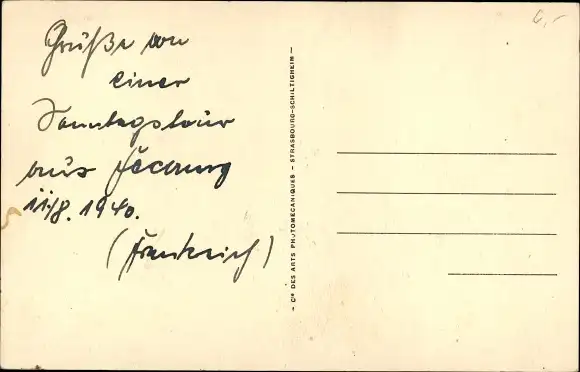 Grüße von
einer
Sonntagstour
aus
11./8. 1940.
(Frankreich)
- Cie DES ARTS PHOTOMÉCANIQUES - STRASBOURG-SCHILTIGHEIM -
6,-